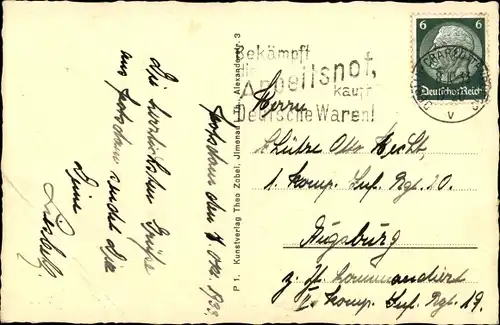 Die herzlichsten Grüße
aus Potsdam sendet Dir
Deine
Potsdam den 7. Okt.
P 1. Kunstverlag Theo Zobel, Jlmenau i. Th., Alexanderstr. 3
Bekämpft
die
Arbeitsnot,
kauft
Deutsche Waren!
6 6
Deutsches Reich
Herrn
Schütze Otto Hecht,
1. Komp. Inf. Rgt. 20.
Augsburg
z. Zt. kommandiert
Komp. Inf. Rgt. 19.